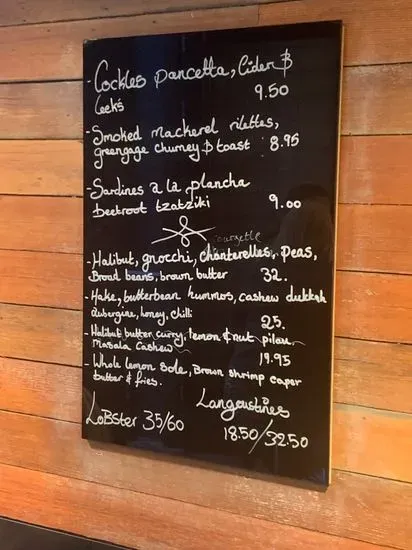 - Cockles pancetta, Cider &
Leeks 9.50
- Smoked mackerel rilettes,
greengage churney & toast 8.95
- Sardines a la plancha
beetroot tzatziki 9.00
courgette
- Halibut, gnocchi, chanterelles, peas,
Broad beans, brown butter 32.
- Hake, butterbean hummos, cashew dukkah
Aubergine, honey, chilli 25.
- Halibut butter curry, lemon & nut pilau
Masala Cashew 19.95
- Whole lemon sole, Brown shrimp caper
butter & fries.
Langoustines
LoBster 35/60 18.50/32.50